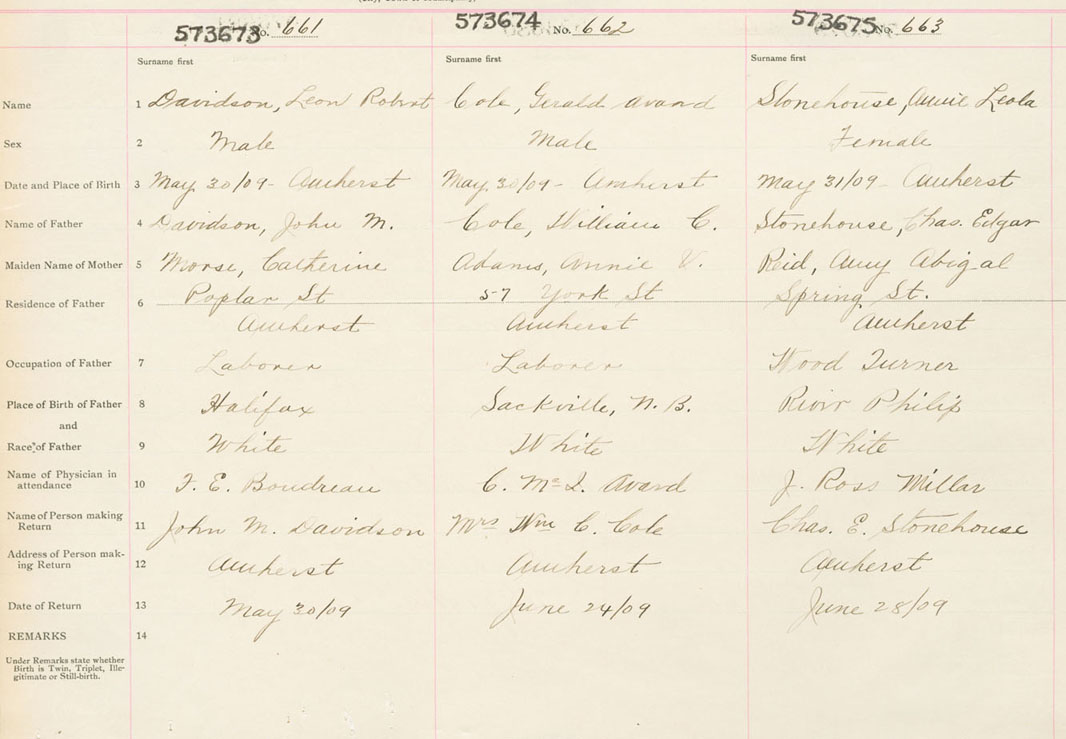 573673 No. 661 573674 No. 662 573675 No. 663
Surname first Surname first Surname first
Name 1 Davidson, Leon Robert Cole, Gerald Avard Stonehouse, Annie Leola
Sex 2 Male Male Female
Date and Place of Birth 3 May 30/09- Amherst May 30/09- Amherst May 31/09- Amherst
Name of Father 4 Davidson, John M. Cole, William C. Stonehouse, Chas. Edgar
Maiden Name of Mother 5 Morse, Catherine Adams, Annie V. Reid, Amy Abigal
Residence of Father 6 Poplar St 57 York St Spring St.
Amherst Amherst Amherst
Occupation of Father 7 Laborer Laborer Wood Turner
Place of Birth of Father 8 Halifax Sackville, N.B. River Philip
and
Race of Father 9 White White White
Name of Physician in
attendance 10 F. E. Boudreau C. McQ. Avard J. Ross Millar
Name of Person making
Return 11 John M. Davidson Mrs Wm C. Cole Chas. E. Stonehouse
Address of Person mak-
ing Return 12 Amherst Amherst Amherst
Date of Return 13 May 30/09 June 24/09 June 28/09
REMARKS 14
Under Remarks state whether
Birth is Twin, Triplet, Ille-
gitimate or Still-birth.